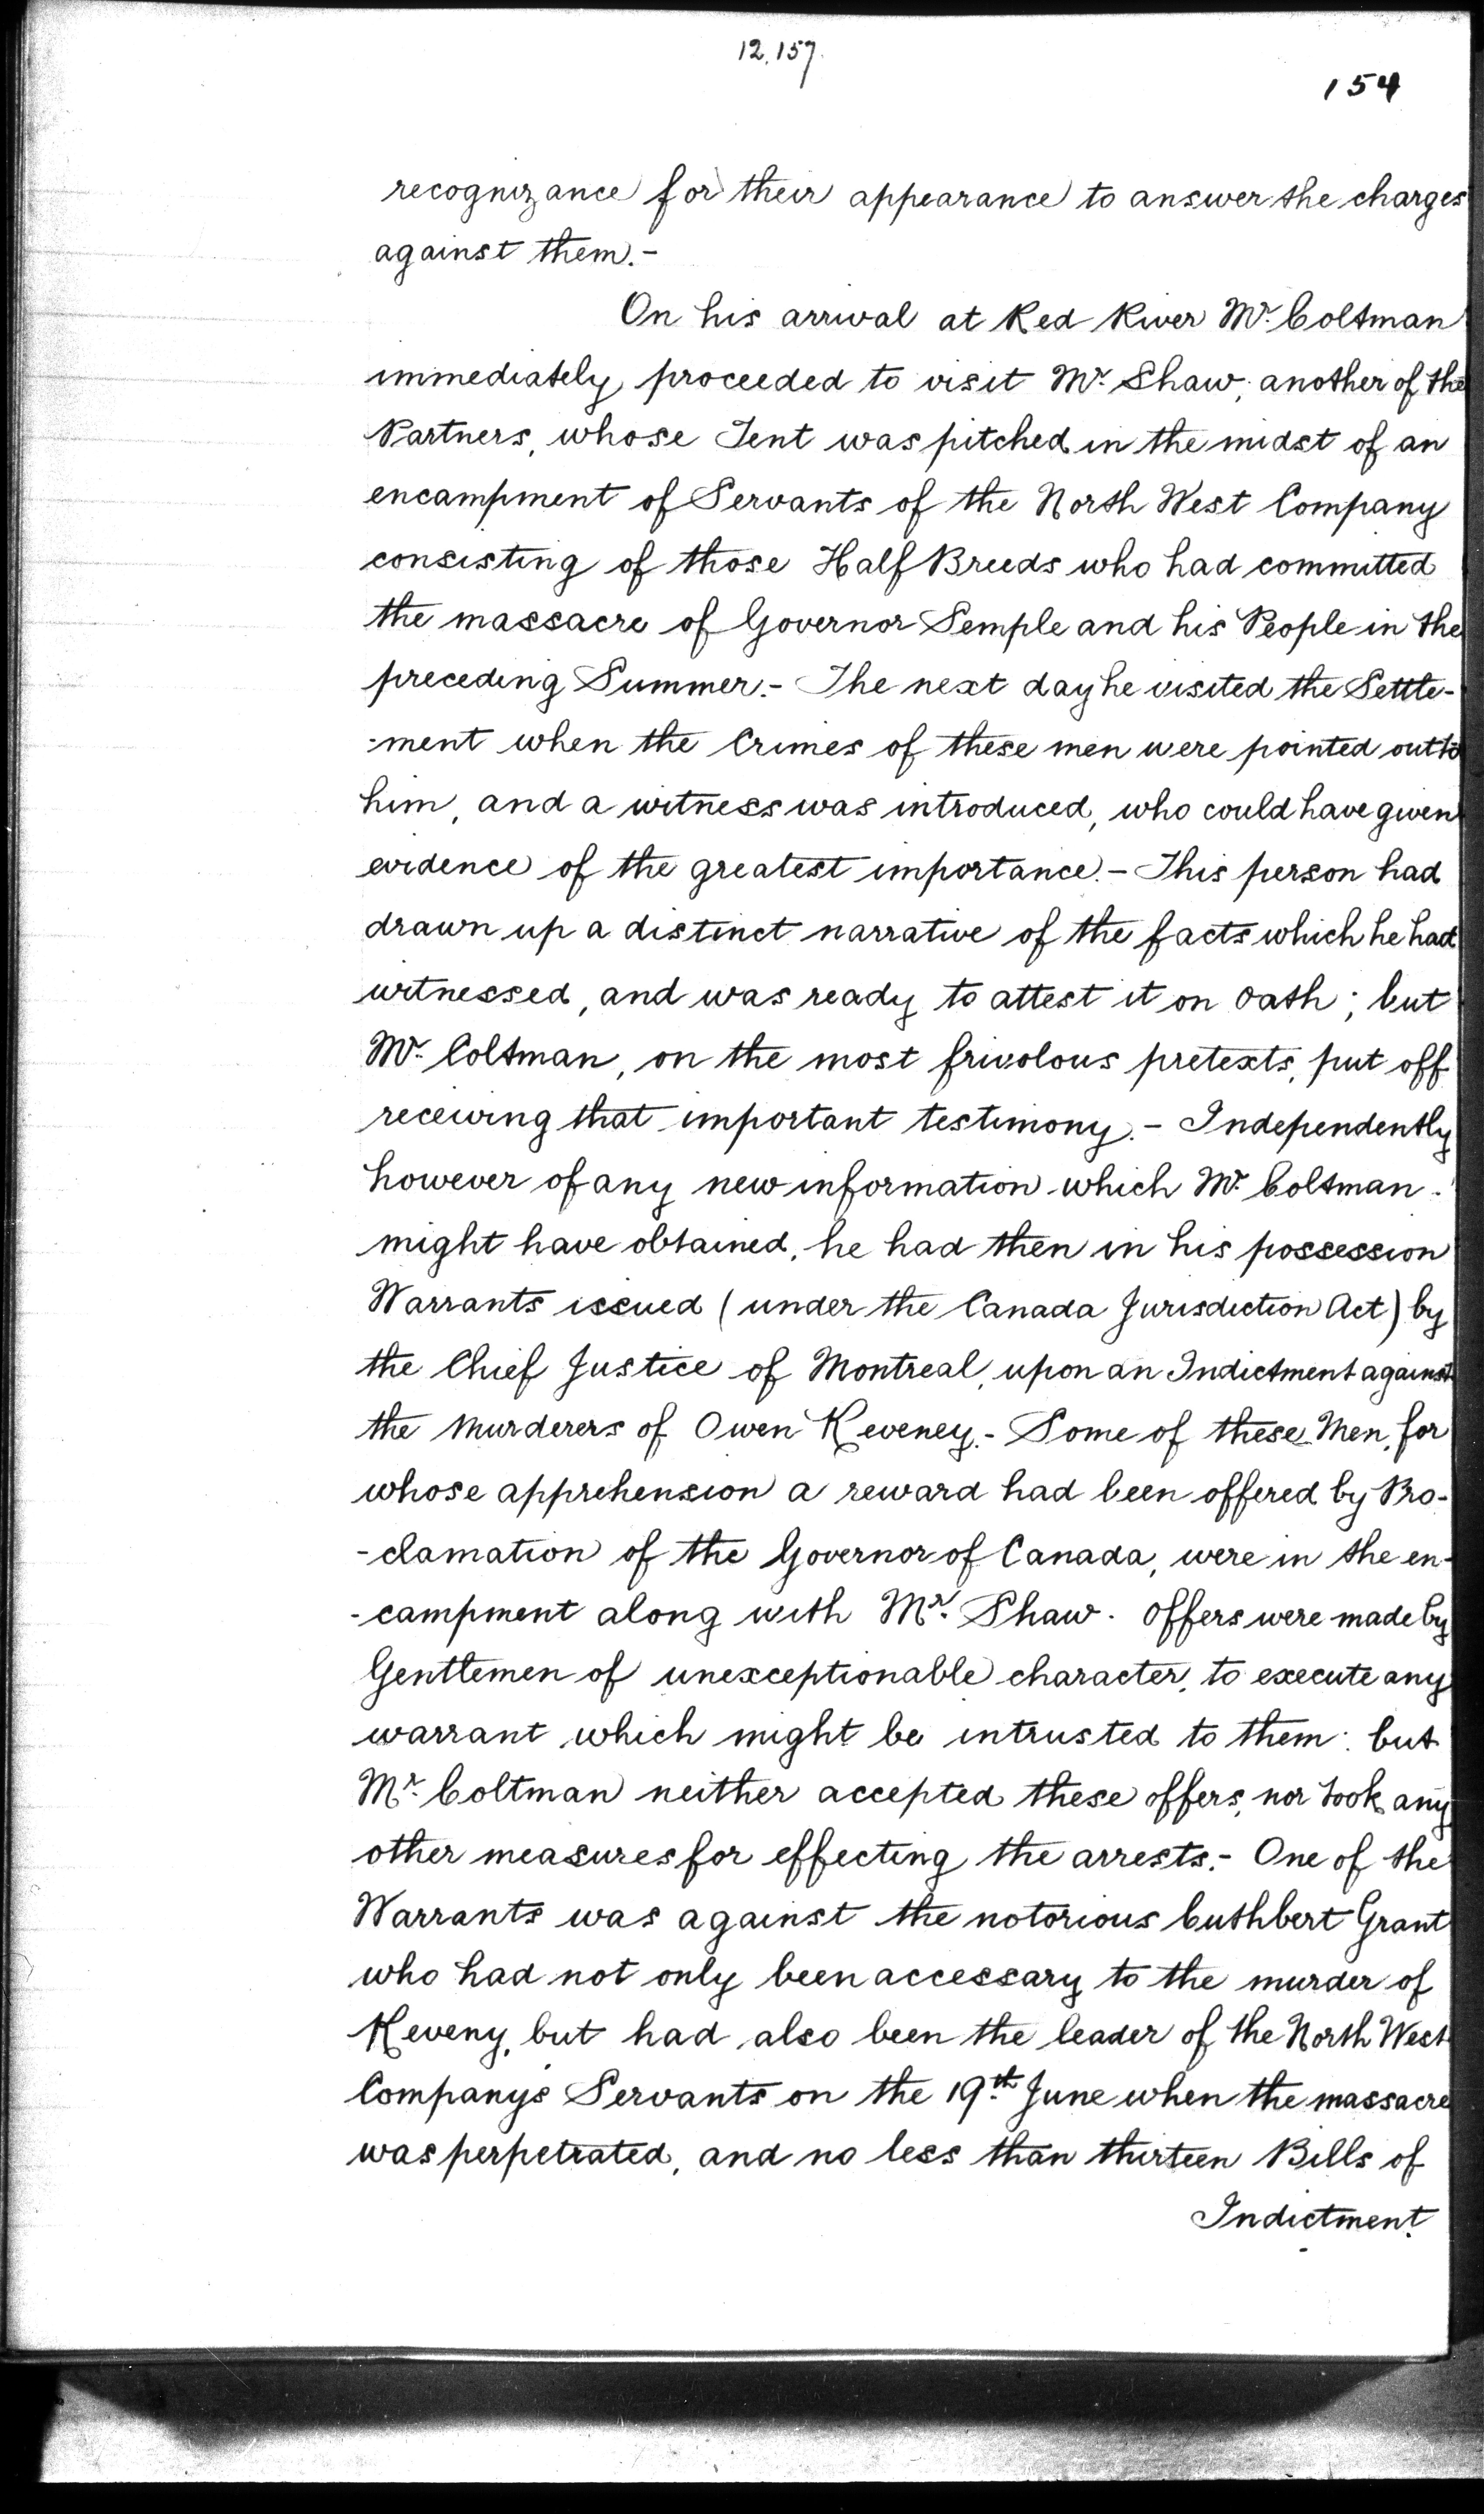 12,157.
154
recognizance for their appearance to answer the charges
against them.-
On his arrival at Red River Mr. Coltman
immediately proceeded to visit Mr. Shaw, another of the
Partners, whose Tent was pitched in the midst of an
encampment of Servants of the North West Company
consisting of those Half Breeds who had committed
the massacre of Governor Semple and his People in the
preceding Summer.- The next day he visited the Settle-
-ment when the Crimes of these men were pointed out to
him, and a witness was introduced, who could have given
evidence of the greatest importance.- This person had
drawn up a distinct narrative of the facts which he had
witnessed, and was ready to attest it on Oath; but
Mr. Coltman, on the most frivolous pretexts, put off
receiving that important testimony.- Independently
however of any new information which Mr. Coltman
might have obtained, he had then in his possession
Warrants issued (under the Canada Jurisdiction Act) by
the Chief Justice of Montreal, upon an Indictment against
the Murderers of Owen Keveney.- Some of these Men, for
whose apprehension a reward had been offered by Pro-
-clamation of the Governor of Canada, were in the en-
-campment along with Mr. Shaw. Offers were made by
Gentlemen of unexceptionable character, to execute any
warrant which might be intrusted to them: but
Mr. Coltman neither accepted these offers, nor took any
other measures for effecting the arrests.- One of the
Warrants was against the notorious Cuthbert Grant
who had not only been accessary to the murder of
Keveny, but had also been the leader of the North West
Companys Servants on the 19th June when the massacre
was perpetrated, and no less than thirteen Bills of
Indictment